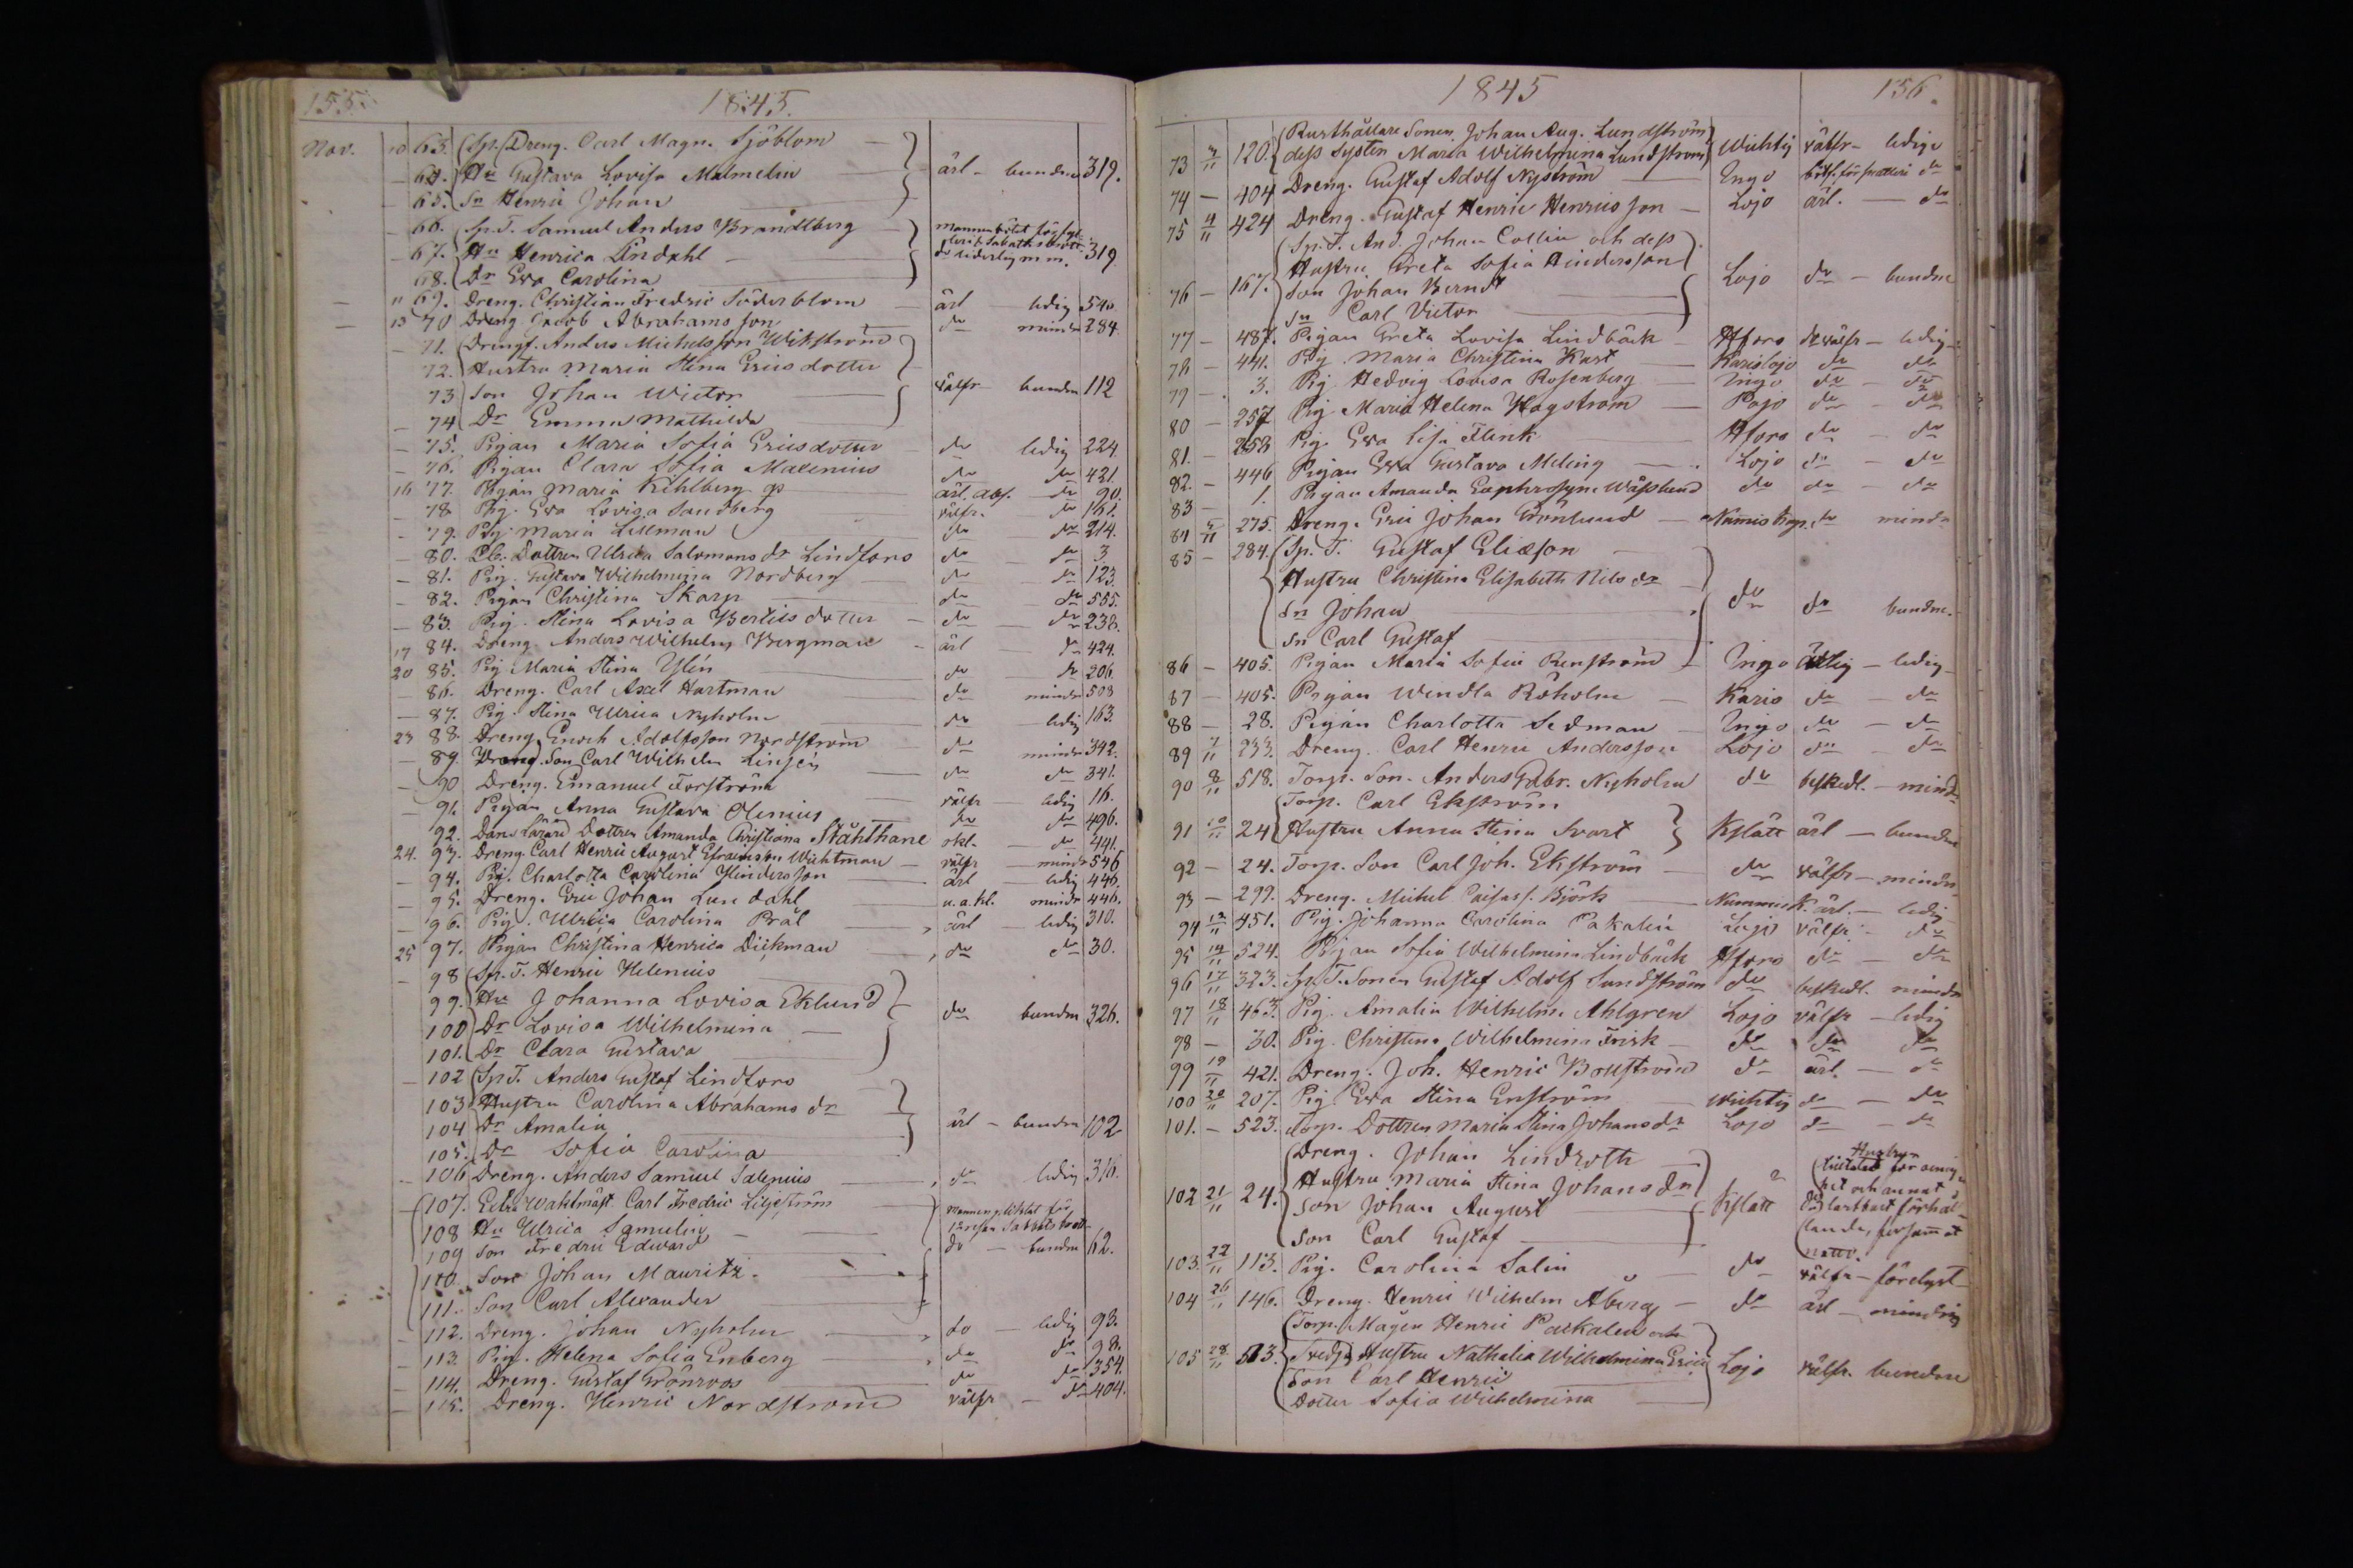 155.
1845.
Nov. 10 63. Sp. Dreng. Carl Magn. Sjöblom
— 64. Hu Gustava Lovisa Malmelin ärl – bundna 319.
— 65. Sn Henric Johan
— 66. Sp. T. Samuel Anders Brandtberg
— 67. Hu Henrica Lindahl 319
68. Dr Eva Carolina
— 11 69. Dreng. Christian Fredric Söderblom ärl ledig 540
— 13 70 Dreng Jacob Abrahamsson do mindr 284.
— 71. Drengs. Anders Michelsson Wikström
72. Hustru Maria Stina Ericsdotter
73 Son Johan Wictor välfr bundna 112
— 74 Dr Emma Mathilda
— 75. Pigan Maria Sofia Ericsdotter do ledig 224
— 76. Pigan Clara Sofia Maxenius do do 421.
16 77. Pigan Maria Kihlberg ärl. abs. do 90.
— 78. Pig. Eva Lovisa Sandberg välfr. do 161.
— 79. Pig Maria Lillman do do 214.
— 80. Dottren Ulrica Salomons dr Lindfors do do 3
— 81. Pig. Gustava Wilhelmina Nordberg do do 123.
— 82. Pigan Christina Skarp do do 555.
— 83. Pig. Stina Lovisa Bertilsdotter do do 238.
17 84. Dreng. Anders Wilhelm Bergman ärl do 424.
20 85. Pig Maria Stina Ylén do do 206.
— 86. Dreng. Carl Axel Hartman do mindr 508
— 87. Pig. Stina Ulrica Nyholm do ledig 163.
23 88. Dreng. Enoch Adolfsson Nordström do mindr 342.
— 89. Dreng. Son Carl Wilhelm Linsén do do 341.
— 90 Dreng. Emanuel Forström välfr ledig 16.
— 91. Pigan Anna Gustava Olenius do do 496.
92. Dans Lärare Dottren Amanda Christiana Ståhlhane okl. do 441.
24. 93. Dreng. Carl Henric August Efraimson Wichtman välfr mindr 546
— 94. Pig. Charlotta Carolina Hindersson ärl ledig 446.
— 95. Dreng. Eric Johan Lundahl u.a.kl. mindr 446.
— 96. Pig. Ulrica Carolina Präl ärl ledig 310.
25 97. Pigan Christina Henrica Dickman do do 30.
— 98 Sp. T. Henric Helenius
99. Hu Johanna Lovisa Eklund do bundna 326.
100 Dr Lovisa Wilhelmina
101. Dr Clara Gustava
— 102 Sp T. Anders Gustaf Lindfors
103 Hustru Carolina Abrahams dr
104 Dr Amalia ärl – bundna 102
105. Dr Sofia Carolina
— 106 Dreng. Anders Samuel Salenius do ledig 316.
107. Extra Waktmäst. Carl Fredric Liljeström
108 Hu Ulrica Samulin
109 Son Fredric Edward do – bundna 62.
110. Son Johan Mauritz.
111. Son Carl Alexander
— 112. Dreng. Johan Nyholm do – ledig 93.
— 113. Pig. Helena Sofia Enberg do do 98.
— 114. Dreng. Gustaf Grönroos do do 354.
— 115. Dreng. Henric Nordström välfr – do 404.
1845
156.
Rusthållare Sonen Johan Aug. Lundström
73 3/11 120. dess Syster Maria Wilhelmina Lundström Wichtis välfr – lediga
74 — 404 Dreng. Gustaf Adolf Nyström Ingo do
75 4/11 424 Dreng. Gustaf Henric Henricsson Lojo ärl. — do
Sp. T. And. Johan Collin och dess
Hustru Greta Sofia Hindersson
76 — 167. Son Johan Berndt Lojo do – bundne
Sn Carl Victor
77 — 487. Pigan Greta Lovisa Lindbäck Hfors välfr – ledig
78 — 441. Pig. Maria Christina Kast Karislojo do do
79 — 3. Pig Hedvig Lovisa Rosenberg Ingo do – do
80 — 257 Pig Maria Helena Hagström Pojo do – do
81. — 258 Pig. Eva Lisa Flink Hfors do – do
82. — 446 Pigan Eva Gustava Meling Lojo do – do
83 — 1. Pigan Amanda Euphrosyne Wåhlund do do – do
84 5/11 275. Dreng. Eric Johan Grönlund Nummis Kap. do mindr
85 — 284. Sp. T. Gustaf Eliæson
Hustru Christina Elisabeth Nils dr
Sn Johan do do bundne.
Sn Carl Gustaf
86 — 405. Pigan Maria Sofia Renström Ingo ärlig – ledig
87 — 405. Pigan Wendla Röholm Karis do – do
88 — 28. Pigan Charlotta Sedman Ingo do – do
89 7/11 233. Dreng. Carl Henric Andersson Lojo do – do
90 8/11 518. Torp. Son. Anders Gabr. Nyholm do beskedl. – mindr
Torp. Carl Ekström
91 10/11 24 Hustru Anna Stina Svart Kslätt ärl – bundne
92 — 24. Torp. Son Carl Joh. Ekström do välfr – mindr
93 — 299. Dreng. Michel Björk Nummis K. ärl. – ledig
94 13/11 451. Pig. Johanna Carolina Pakalén Lojo välfr – do
95 14/11 524. Pigan Sofia Wilhelmina Lindbäck Hfors do – do
96 17/11 323. Sp. T. Sonen Gustaf Adolf Sundström do beskedl. mindr
97 18/11 463. Pig. Amalia Wilhelm. Ahlgren Lojo välfr – ledig
98 — 30. Pig. Christina Wilhelmina Frisk do do do
99 19/11 421. Dreng. Joh. Henric Boxström do ärl. — do
100 20/11 207. Pig Eva Stina Enström Wichtis do – do
101. — 523. Torp. Dottren Maria Stina Johansdr Lojo do – do
Dreng. Johan Lindroth Hustrun
Hustru Maria Stina Johans dr för oenig
102 21/11 24. Son Johan August Kslätt het och annat
Son Carl Gustaf lastbart förhål-
lande, församat
nattv.
103. 22/11 113. Pig. Carolina Salin do välfr – förelyst
104 26/11 146. Dreng. Henric Wilhelm Åberg do ärl – mindrig
Torp. Mågen Henric Packalen och
105 28/11 513. Hustru Nathalia Wilhelmina Lojo välfr. bundne
Son Carl Henric
Dotter Sofia Wilhelmina